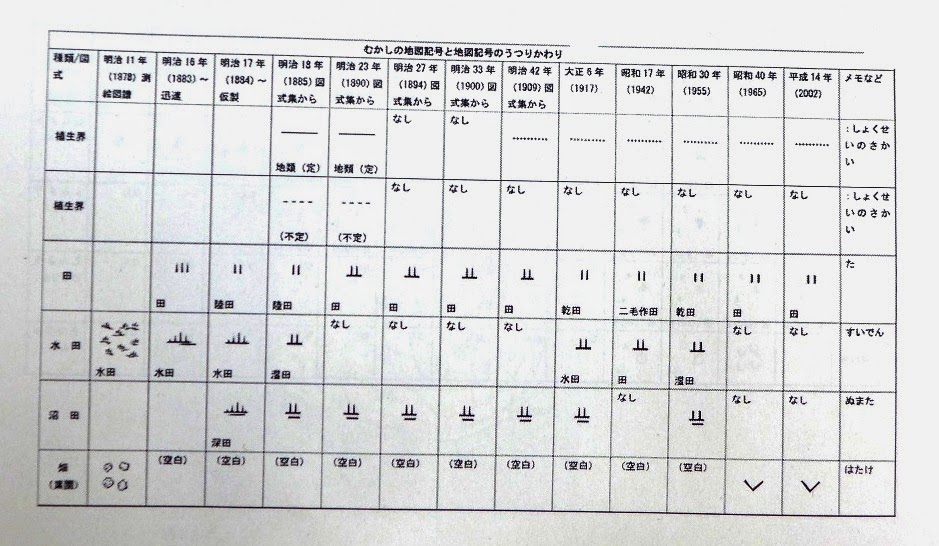 むかしの地図記号と地図記号のうつりかわり
種類/図式 明治11年(1878)測絵図譜 明治16年(1883)～迅速 明治17年(1884)～仮製 明治18年(1885)図式集から 明治23年(1890)図式集から 明治27年(1894)図式集から 明治33年(1900)図式集から 明治42年(1909)図式集から 大正6年(1917) 昭和17年(1942) 昭和30年(1955) 昭和40年(1965) 平成14年(2002) メモなど
植生界 地類(定) 地類(定) なし なし :しょくせいのさかい
植生界 (不定) (不定) なし なし なし なし なし なし なし なし :しょくせいのさかい
田 田 陸田 陸田 田 田 田 田 乾田 二毛作田 乾田 田 田 た
水田 水田 水田 水田 澄田 なし なし なし なし 水田 田 澄田 なし なし すいでん
沼田 深田 なし なし なし ぬまた
畑 (空白) (空白) (空白) (空白) (空白) (空白) (空白) (空白) (空白) (空白) はたけ